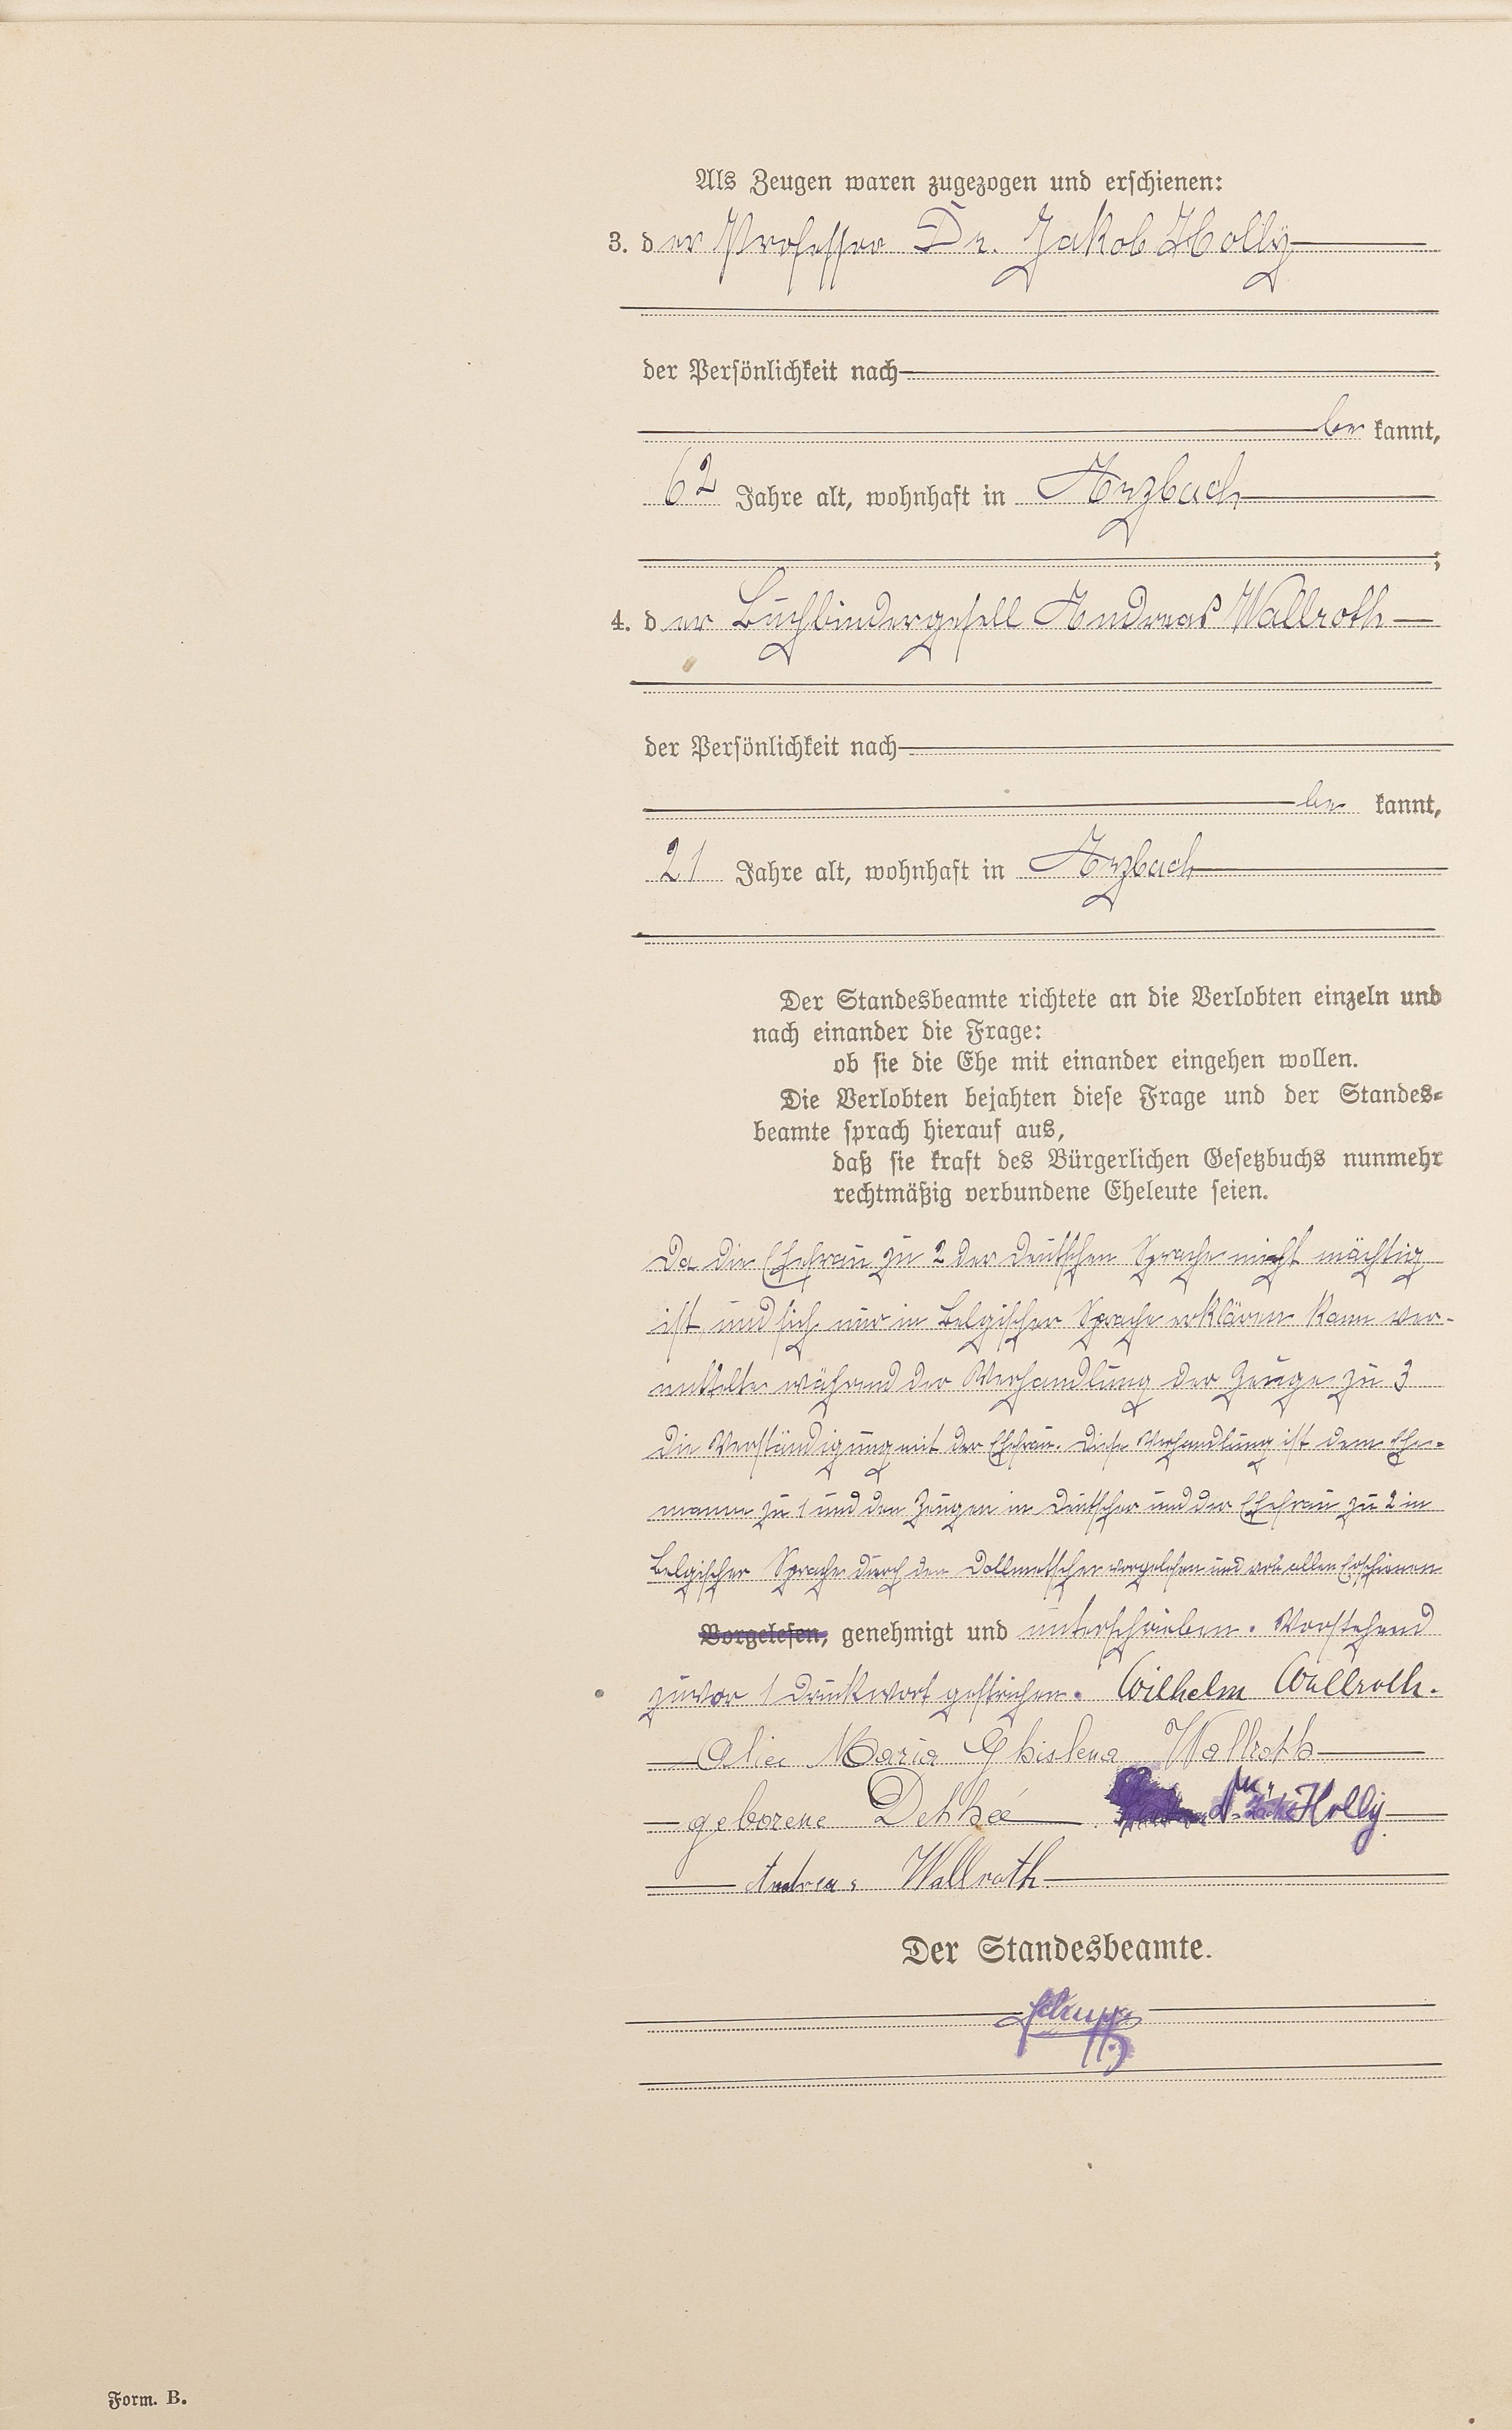 Als Zeugen waren zugezogen und erschienen:
3. der Professor Dr. Jakob Holly
der Persönlichkeit nach
be kannt,
62 Jahre alt, wohnhaft in Arzbach
;
4. der Buchbindergesell Andreas Wallroth
der Persönlichkeit nach
be kannt,
21 Jahre alt, wohnhaft in Arzbach
Der Standesbeamte richtete an die Verlobten einzeln und
nach einander die Frage:
ob sie die Ehe mit einander eingehen wollen.
Die Verlobten bejahten diese Frage und der Standes-
beamte sprach hierauf aus,
daß sie kraft des Bürgerlichen Gesetzbuchs nunmehr
rechtmäßig verbundene Eheleute seien.
Da die Ehefrau zu 2 der deutschen Sprache nicht mächtig
ist, und sich nur in Belgischer Sprache erklären kann ver-
mittelte während der Verhandlung der Zeuge zu 3
die Verständigung mit der Ehefrau. Diese Verhandlung ist dem Ehe-
manne zu 1 und den Zeugen in deutscher und der Ehefrau zu 2 in
Belgischer Sprache durch den Dollmetscher vorgelesen und von allen Erschienen
Vorgelesen, genehmigt und unterschrieben. Vorstehend
zuvor 1 Druckwort gestrichen. Wilhelm Wallroth.
Alice Maria Ghislena Wallroth
geborene Holly
Andreas Wallroth
Der Standesbeamte.
Form. B.